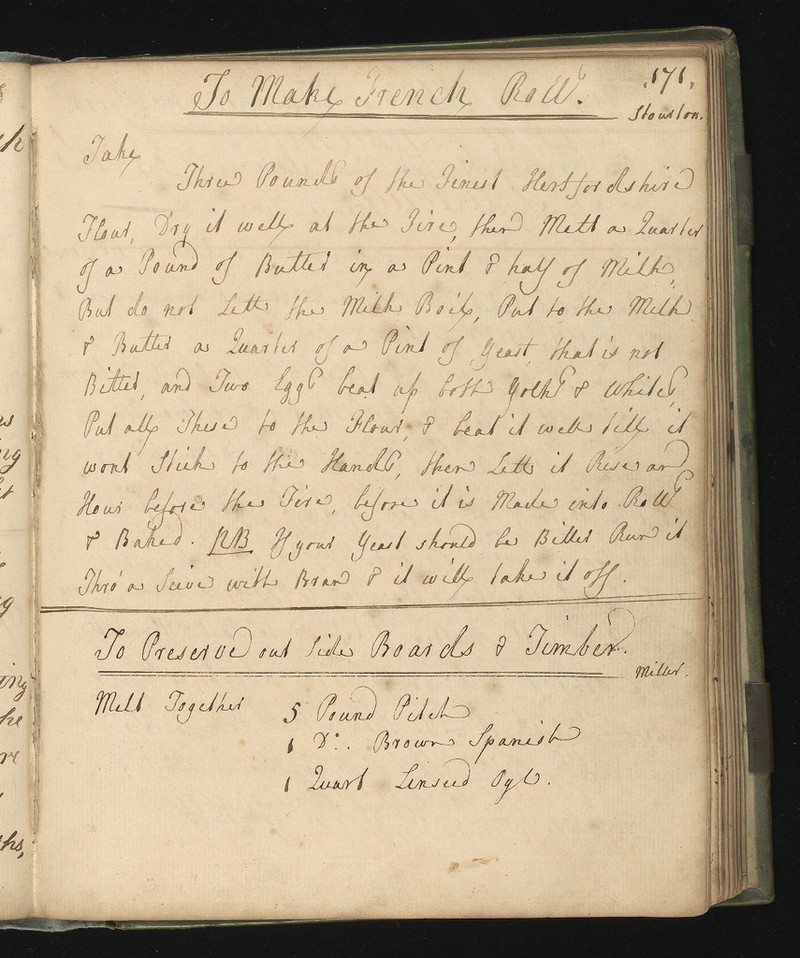 171,
To Make French Rolls.
Stourton.
Take
Three Pounds of the Finest Hertfordshire
Flour, Dry it well at the Fire, then Melt a Quarter
of a Pound of Butter in a Pint & half of Milk,
But do not Lett the Milk Boil, Put to the Milk
& Butter a Quarter of a Pint of Yeast, that is not
Bitter, and Two Eggs beat up both Yolks & Whites,
Put all These to the Flour, & beat it well till it
wont Stick to the Hands, then Lett it Rise an
Hour before the Fire, before it is Made into Rolls
& Baked. NB. If your Yeast should be Bitter Run it
Thro' a Seive with Bran & it will take it off.
To Preserve out side Boards & Timber.
Miller.
Melt Together 5 Pound Pitch
1 Do. Brown Spanish
1 Quart Linseed Oyl.